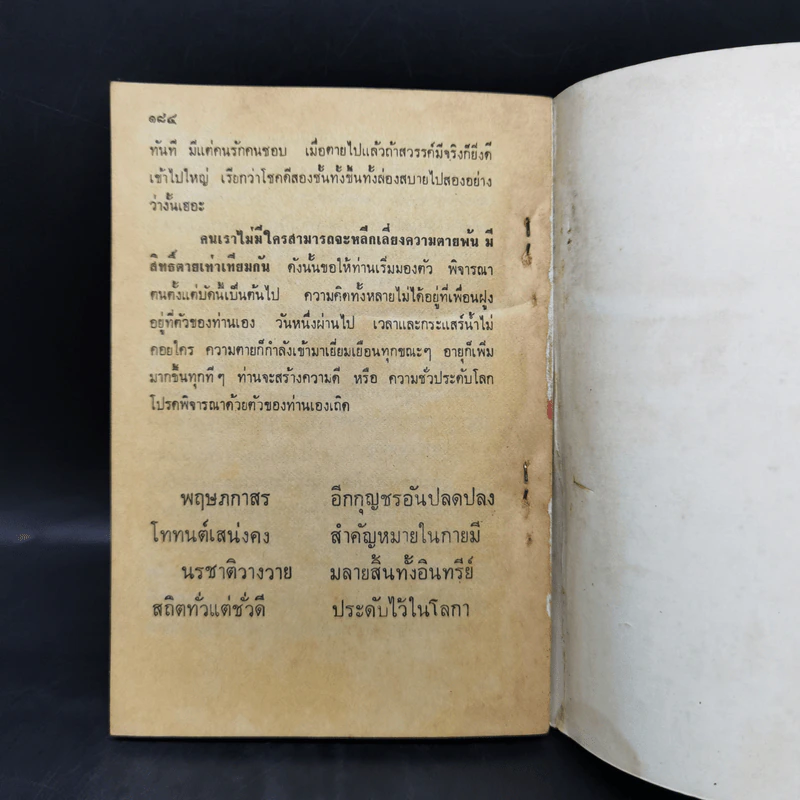 ๑๘๔
ทันที มีแต่คนรักคนชอบ เมื่อตายไปแล้วถ้าสวรรค์มีจริงก็ยิ่งดี
เข้าไปใหญ่ เรียกว่าโชคดีสองชั้นทั้งขึ้นทั้งล่องสบายไปสองอย่าง
ว่างั้นเธอะ
คนเราไม่มีใครสามารถจะหลีกเลี่ยงความตายพ้น มี
สิทธิ์ตายเท่าเทียมกัน ดังนั้นขอให้ท่านเริ่มมองตัว พิจารณา
ตนตั้งแต่บัดนี้เป็นต้นไป ความคิดทั้งหลายไม่ได้อยู่ที่เพื่อนฝูง
อยู่ที่ตัวของท่านเอง วันหนึ่งผ่านไป เวลาและกระแสร์น้ำไม่
คอยใคร ความตายก็กำลังเข้ามาเยี่ยมเยือนทุกขณะๆ อายุก็เพิ่ม
มากขึ้นทุกทีๆ ท่านจะสร้างความดี หรือ ความชั่วประดับโลก
โปรดพิจารณาด้วยตัวของท่านเองเถิด
พฤษภกาสร อีกกุญชรอันปลดปลง
โททนต์เสน่งคง สำคัญหมายในกายมี
นรชาติวางวาย มลายสิ้นทั้งอินทรีย์
สถิตทั่วแต่ชั่วดี ประดับไว้ในโลกา